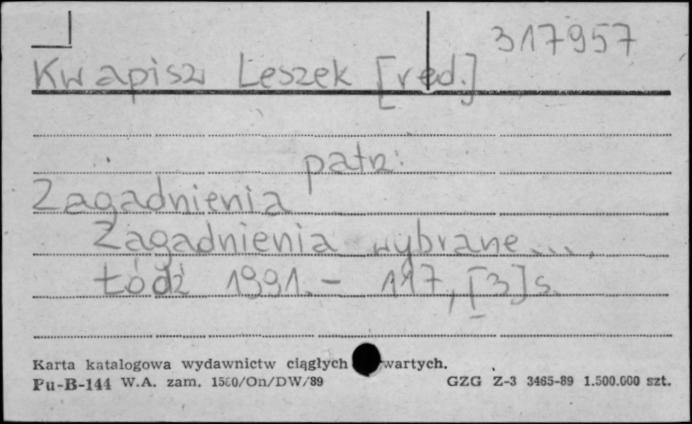 317957
Kwapisz Leszek [red.]
patrz:
Zagadnienia
Zagadnienia wybrane...,
Łódź 1991. - 117, [3] s.
Karta katalogowa wydawnictw ciągłych wartych.
Pu-B-144 W.A. zam. 1560/On/DW/89 GZG Z-3 3465-89 1.500.000 szt.